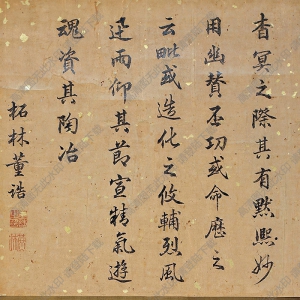 杳冥之際其有默熙妙
用幽贊丕功或命歷之
云毗或造化之攸輔烈風
迅雨仰其節宣精氣遊
魂資其陶冶
柘林董誥